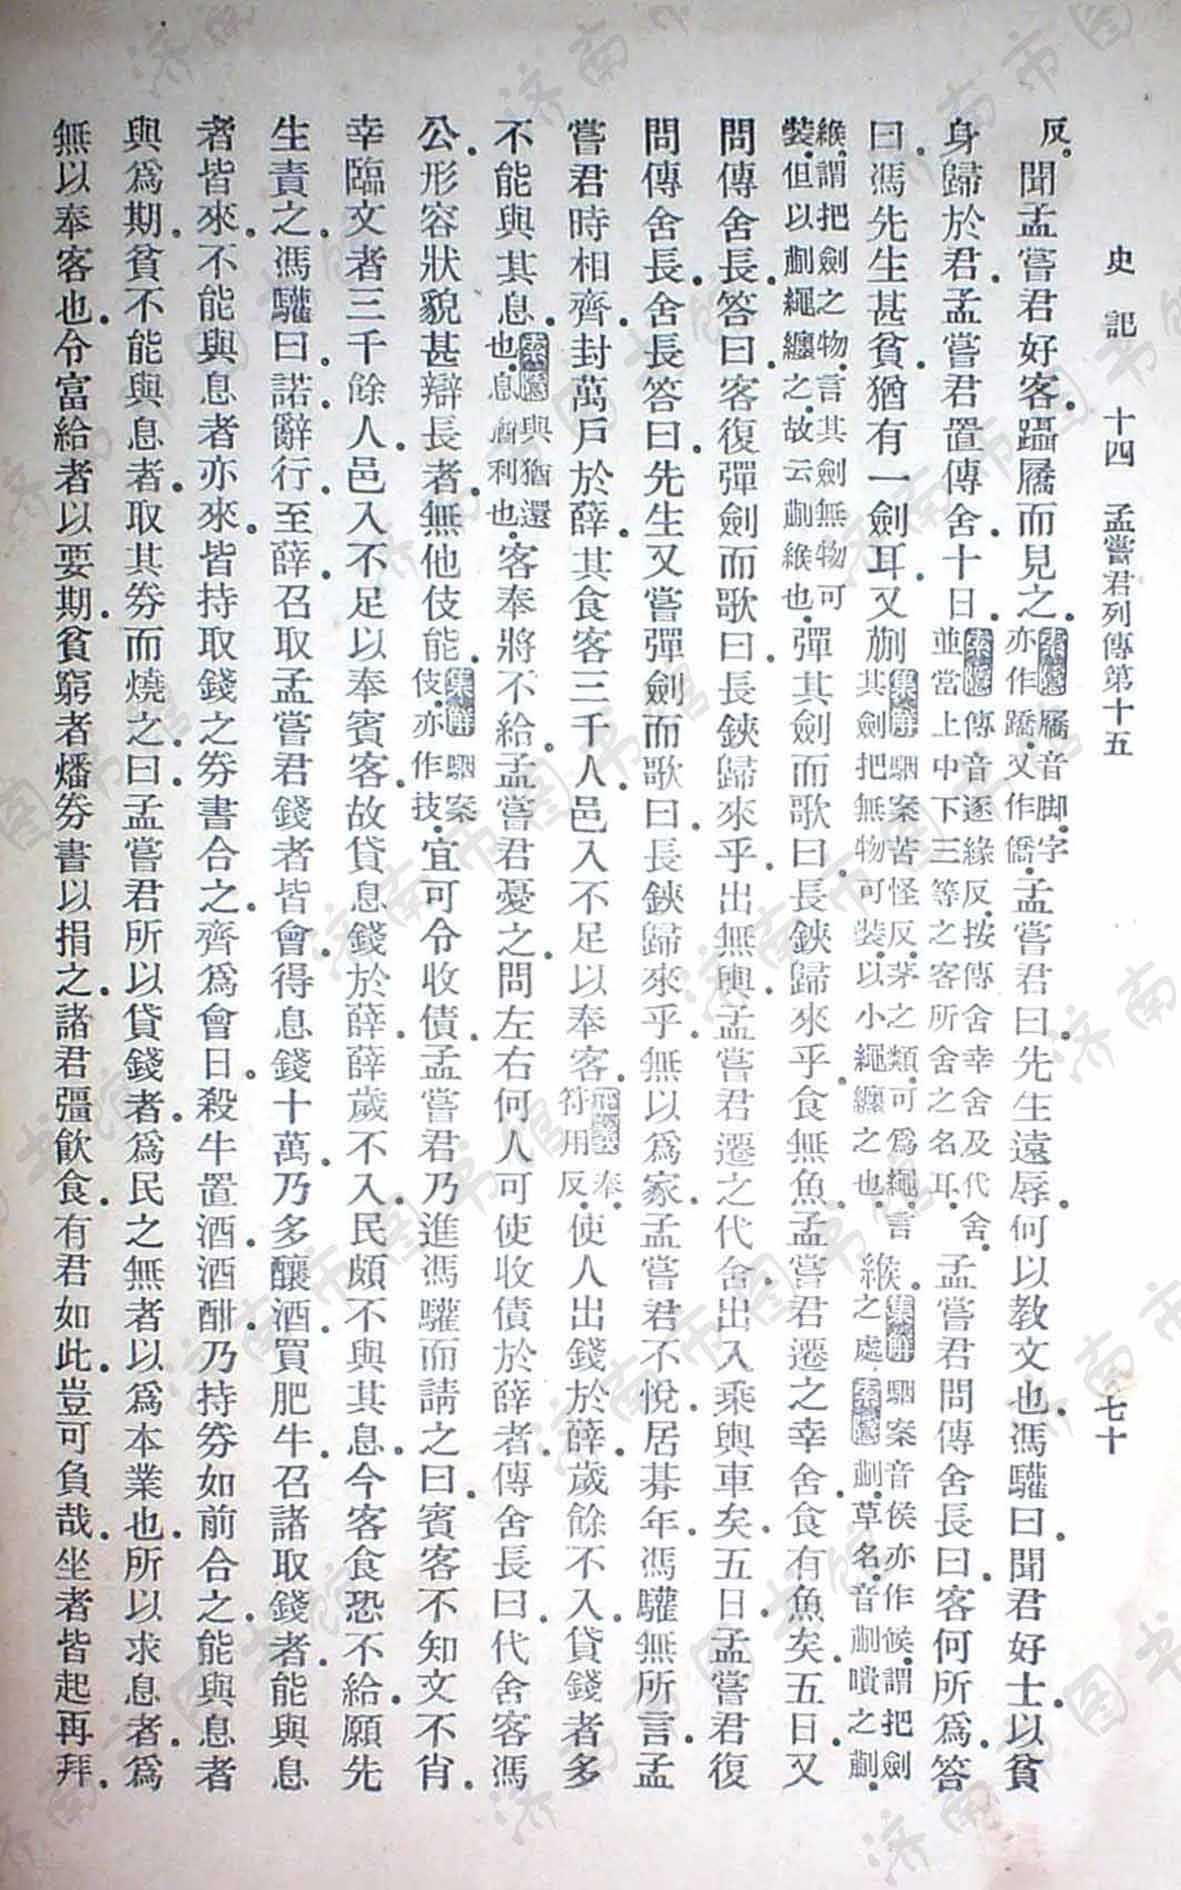 史記　十四　孟嘗君列傳第十五　七十
反。聞孟嘗君好客。躡屩而見之。索隱屩音脚。字亦作蹻。又作僑。孟嘗君曰。先生遠辱。何以教文也。馮驩曰。聞君好士。以貧
身歸於君。孟嘗君置傳舍十日。索隱傳音逐緣反。按傳舍幸舍及代舍。並當上中下三等之客所舍之名耳。孟嘗君問傳舍長曰。客何所爲。答
曰。馮先生甚貧。猶有一劍耳。又蒯集解駰案苦怪反。茅之類。可爲繩。言其劍把無物可裝。以小繩纏之也。緱。集解駰案音侯亦作候。謂把劍之處。索隱蒯。草名。音蒯聵之蒯。
緱。謂把劍之物。言其劍無物可裝。但以蒯繩纏之。故云蒯緱也。彈其劍而歌曰。長鋏歸來乎。食無魚。孟嘗君遷之幸舍。食有魚矣。五日。又
問傳舍長。答曰。客復彈劍而歌曰。長鋏歸來乎。出無輿。孟嘗君遷之代舍。出入乘輿車矣。五日。孟嘗君復
問傳舍長。舍長答曰。先生又嘗彈劍而歌曰。長鋏歸來乎。無以爲家。孟嘗君不悅。居朞年。馮驩無所言。孟
嘗君時相齊。封萬戶於薛。其食客三千人。邑入不足以奉客。正義奉。符用反。使人出錢於薛。歲餘不入。貸錢者多
不能與其息。索隱與猶還也。息猶利也。客奉將不給。孟嘗君憂之。問左右何人可使收債於薛者。傳舍長曰。代舍客馮
公。形容狀貌甚辯。長者。無他伎能。集解駰案伎。亦作技。宜可令收債。孟嘗君乃進馮驩而請之曰。賓客不知文不肖。
幸臨文者三千餘人。邑入不足以奉賓客。故貸息錢於薛。薛歲不入。民頗不與其息。今客食恐不給。願先
生責之。馮驩曰。諾。辭行。至薛。召取孟嘗君錢者皆會。得息錢十萬。乃多釀酒。買肥牛。召諸取錢者。能與息
者皆來。不能與息者亦來。皆持取錢之券書合之。齊爲會日。殺牛置酒。酒酣。乃持券如前合之。能與息者
與爲期。貧不能與息者。取其券而燒之。曰。孟嘗君所以貸錢者。爲民之無者以爲本業也。所以求息者。爲
無以奉客也。今富給者以要期。貧窮者燔券書以捐之。諸君彊飲食。有君如此。豈可負哉。坐者皆起再拜。